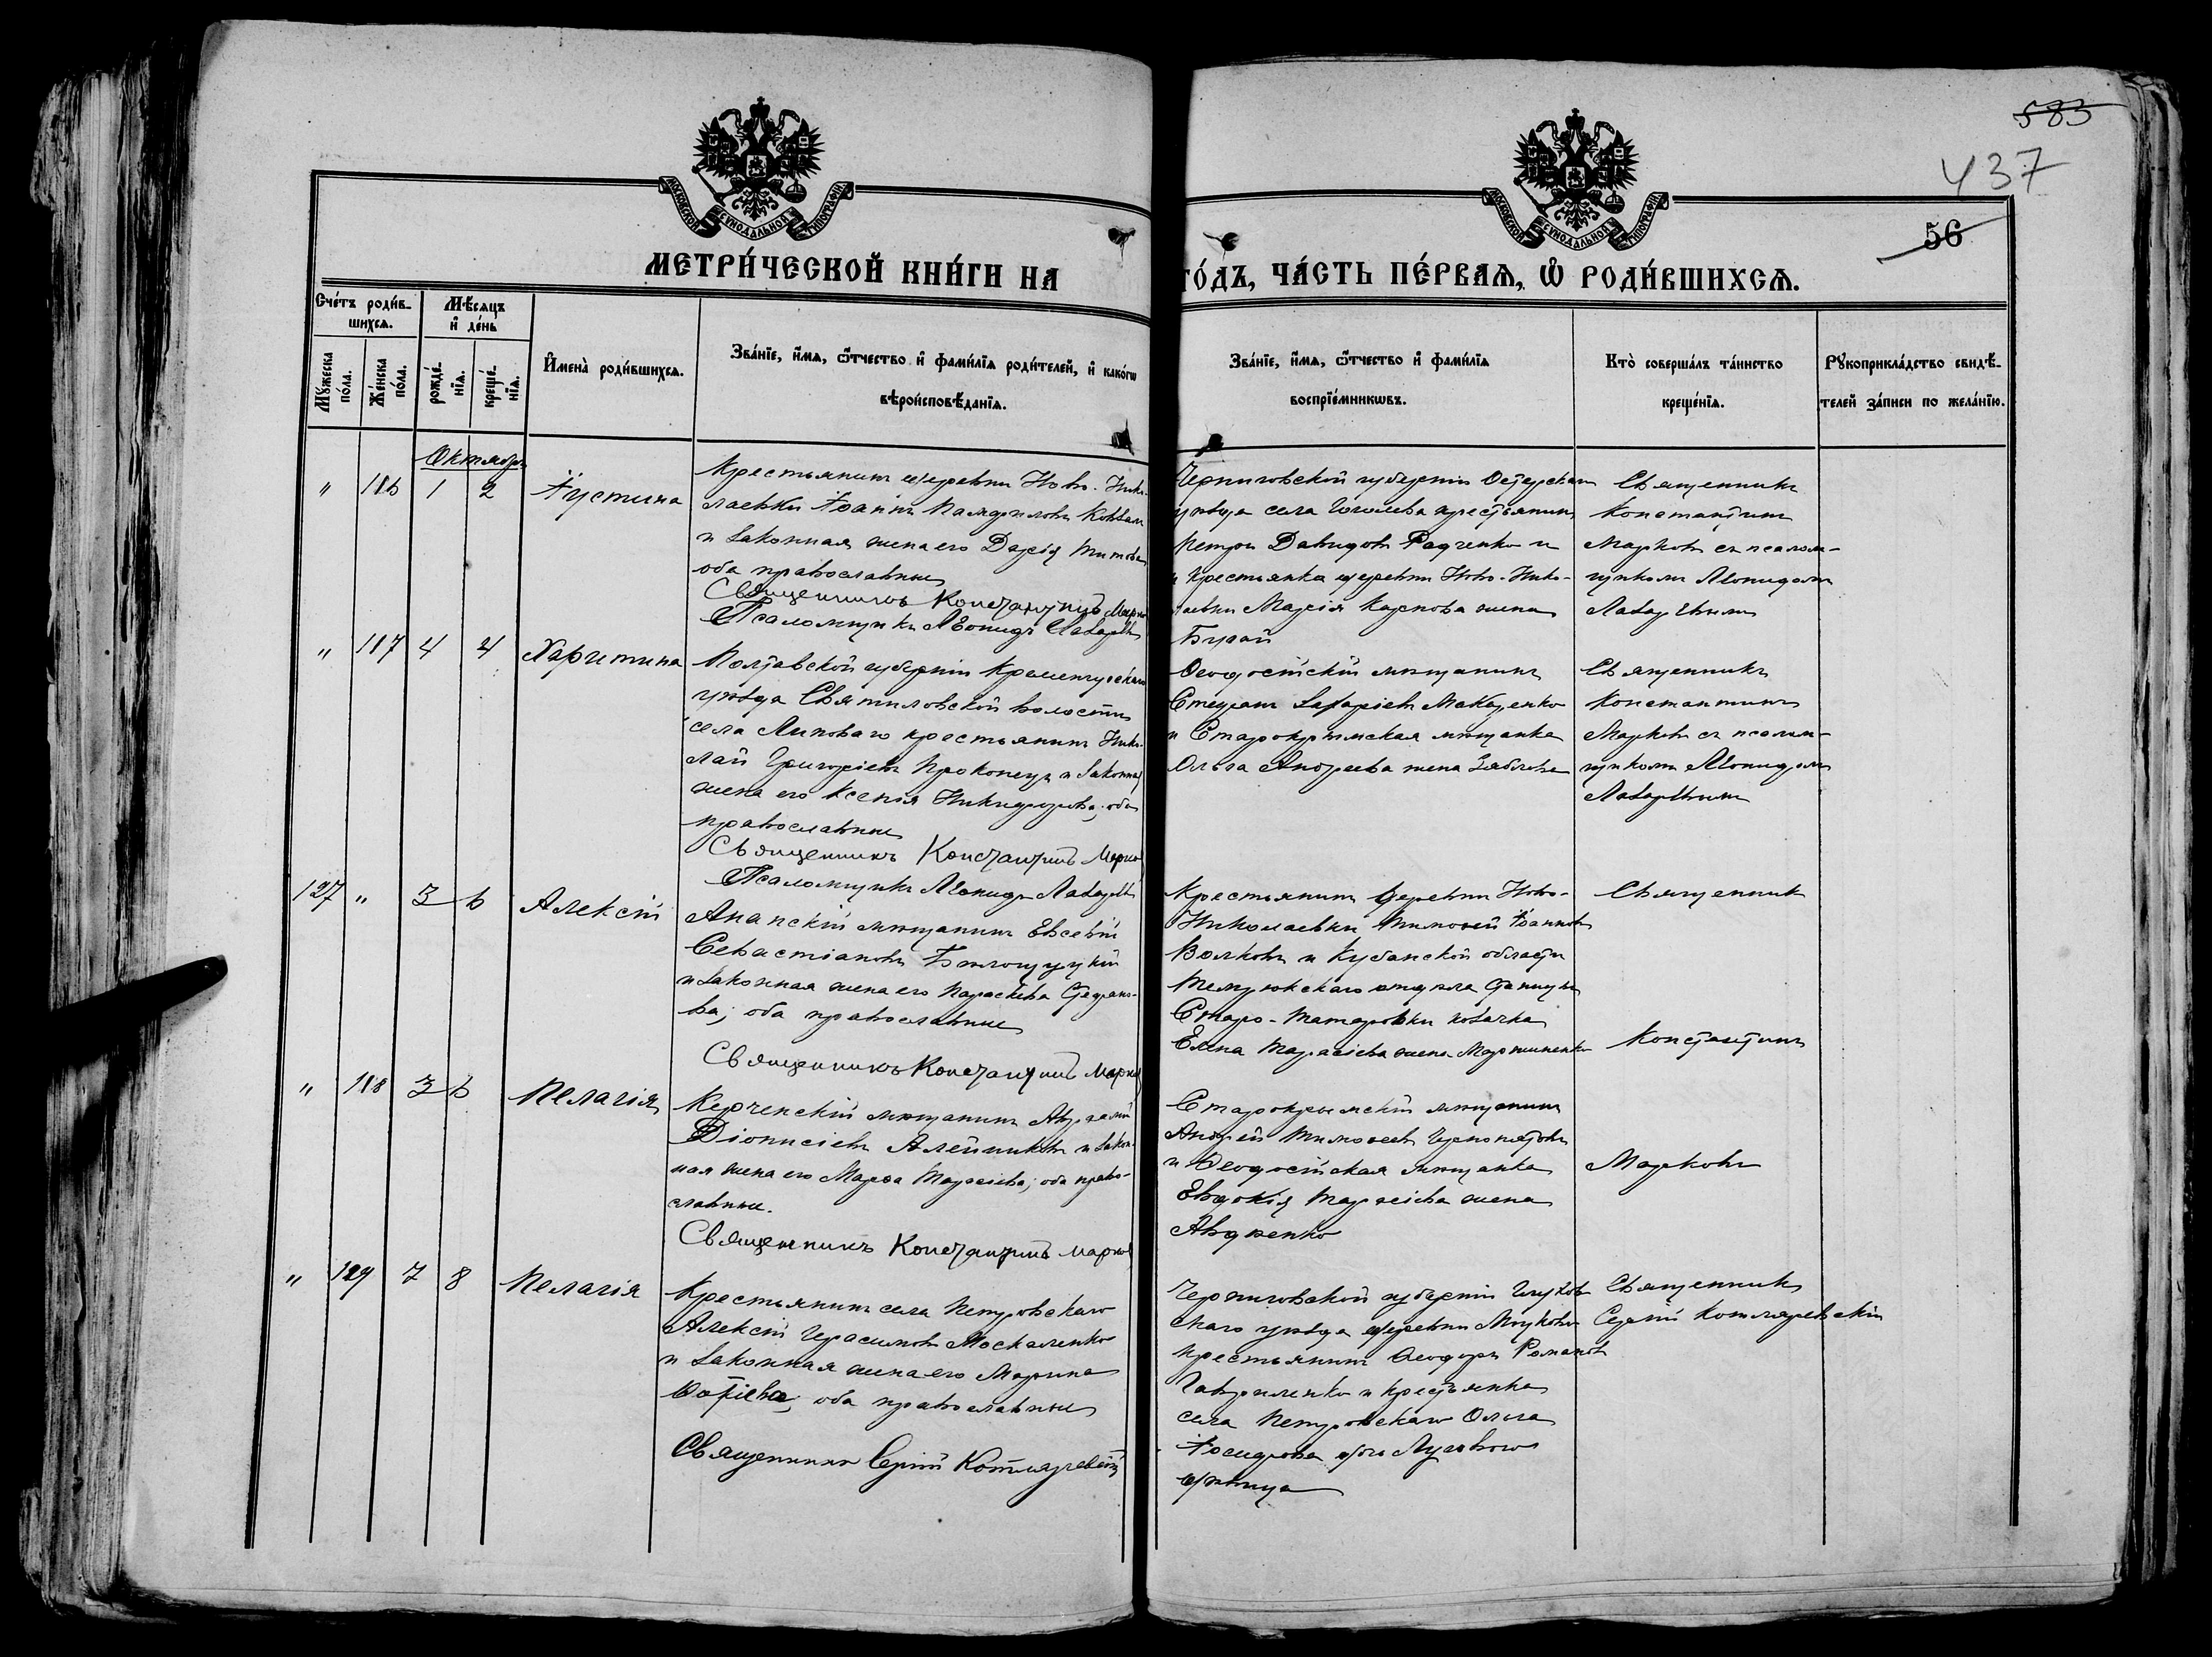 583
437
56
МОСКОВСКОЙ СѴНОДАЛЬНОЙ ТИПОГРАФІИ
МОСКОВСКОЙ СѴНОДАЛЬНОЙ ТИПОГРАФІИ
МЕТРИ́ЧЕСКОЙ КНИ́ГИ НА
ГО́ДЪ, ЧА́СТЬ ПЕ́РВАѦ, Ѽ РОДИ́ВШИХСѦ.
Сче́тъ роди́в-
шихсѧ.
Мꙋ́жеска по́ла.
Же́нска по́ла.
Мѣ́сѧцъ и҆ де́нь
рожде́-нїѧ.
креще́-нїѧ.
И҆мена̀ роди́вшихсѧ.
Зва́нїе, и҆́мѧ, ѻ҆́тчество и҆ фами́лїѧ роди́телей, и҆ како́гѡ
вѣроисповѣ́данїѧ.
Зва́нїе, и҆́мѧ, ѻ҆́тчество и҆ фами́лїѧ
воспрїе́мникѡвъ.
Кто̀ соверша́лъ та́инство
креще́нїѧ.
Рꙋкоприкла́дство свидѣ́-
телей за́писи по жела́нїю.
Октябрь
" 186 1 2 Іустина
Крестьянинъ деревни Ново-Нико-
лаевки Іоаннъ Памфиловъ
и законная жена его Дарія Титова
оба православные
Священникъ Константинъ Марко
Псаломщикъ Леонидъ Лазарев
Черниговской губерніи Остерскаго
уѣзда села Гоголева крестьянинъ
Петръ Давидовъ Радченко и
крестьянка деревни Ново-Нико-
лаевки Марія Карпова жена
Бугай
Священникъ
Константинъ
Марковъ съ псалом-
щикомъ Леонидомъ
Лазаревымъ
" 187 4 4 Харитина
Полтавской губерніи Кременчугскаго
уѣзда Святиловской волости
села Липоваго крестьянинъ Нико-
лай Григоріевъ Прокопецъ и законная
жена его Ксенія Никифорова; оба
православные
Священникъ Константинъ Марко
Псаломщикъ Леонидъ Лазарев
Ѳеодосійскій мѣщанинъ
Стефанъ Захаріевъ Макаренко
и Старокрымская мѣщанка
Ольга Андреева жена
Священникъ
Константинъ
Марковъ съ псалом-
щикомъ Леонидомъ
Лазаревымъ
127 " 3 6 Алексій
Анапскій мѣщанинъ Евсевій
Севастіановъ
и законная жена его Параскева Стефано-
ва; оба православные
Священникъ Константинъ Марко
Крестьянинъ деревни Ново-
Николаевки Тимоѳей Іоанновъ
Волковъ и Кубанской области
Темрюкскаго отдѣла станицы
Старо-Титаровки козачка
Елена Тарасіева жена Мартыненко
Священникъ
Константинъ
" 188 3 6 Пелагія
Керченскій мѣщанинъ
Діонисіевъ Алейниковъ и закон-
ная жена его Марѳа Тарасіева; оба право-
славные.
Священникъ Константинъ Марков
Старокрымскій мѣщанинъ
Андрей Тимоѳеевъ
и Ѳеодосійская мѣщанка
Евдокія Тарасіева жена
Авдѣенко
Марковъ
" 189 7 8 Пелагія
Крестьянинъ села Петровскаго
Алексій Герасимовъ Москаленко
и законная жена его Марина
оба православные
Священникъ Сергій Котляревскій
Черниговской губерніи Глухов-
скаго уѣзда деревни
крестьянинъ Ѳеодоръ Романовъ
Гавриленко и крестьянка
села Петровскаго Ольга
Іосифова дочь
дѣвица
Священникъ
Сергій Котляревскій